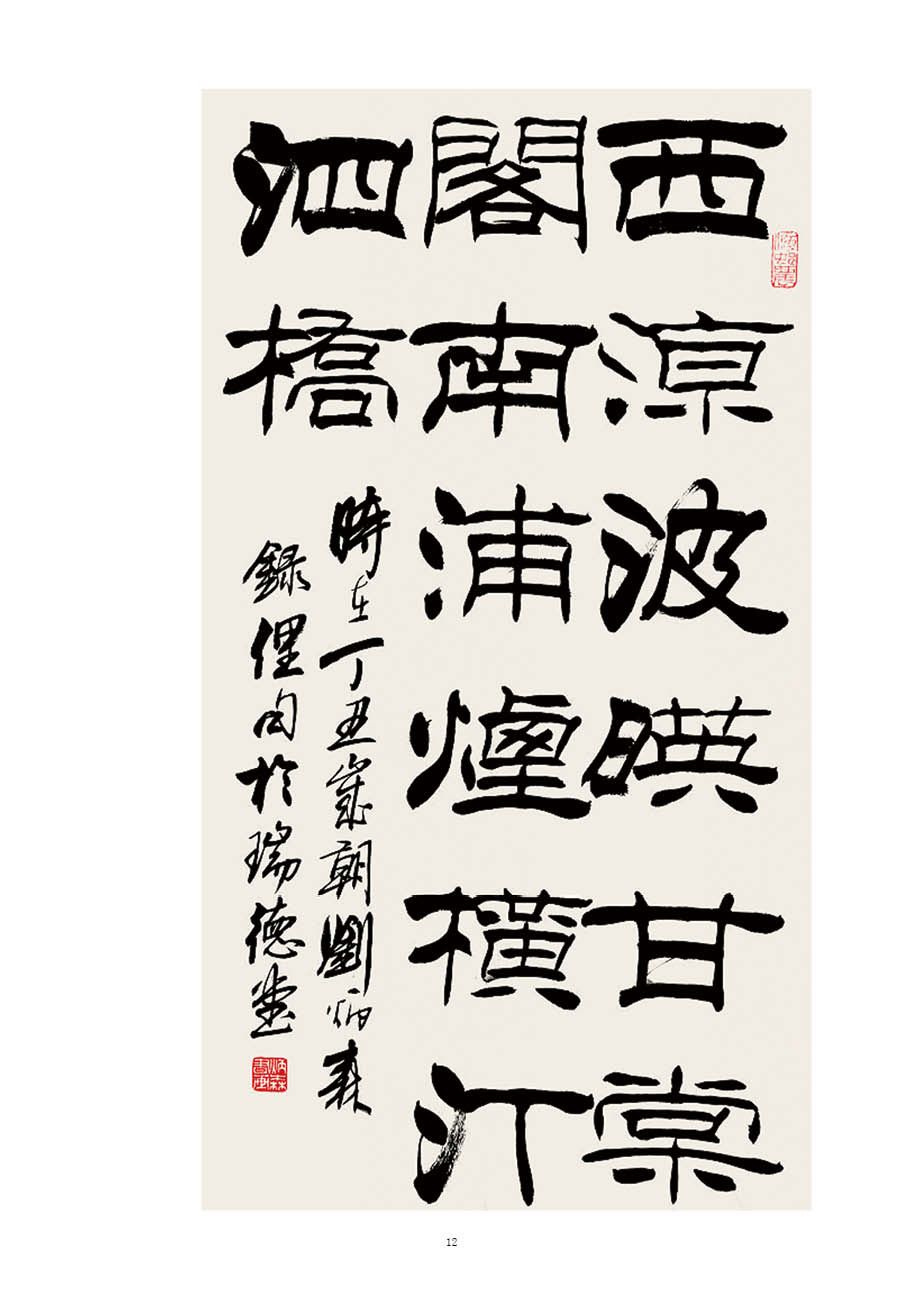 西涼波暎甘棠
閣南浦煙橫汀
泗橋
時在丁丑歲朝劉炳森
錄俚句於瑞德堂
炳森書画
12